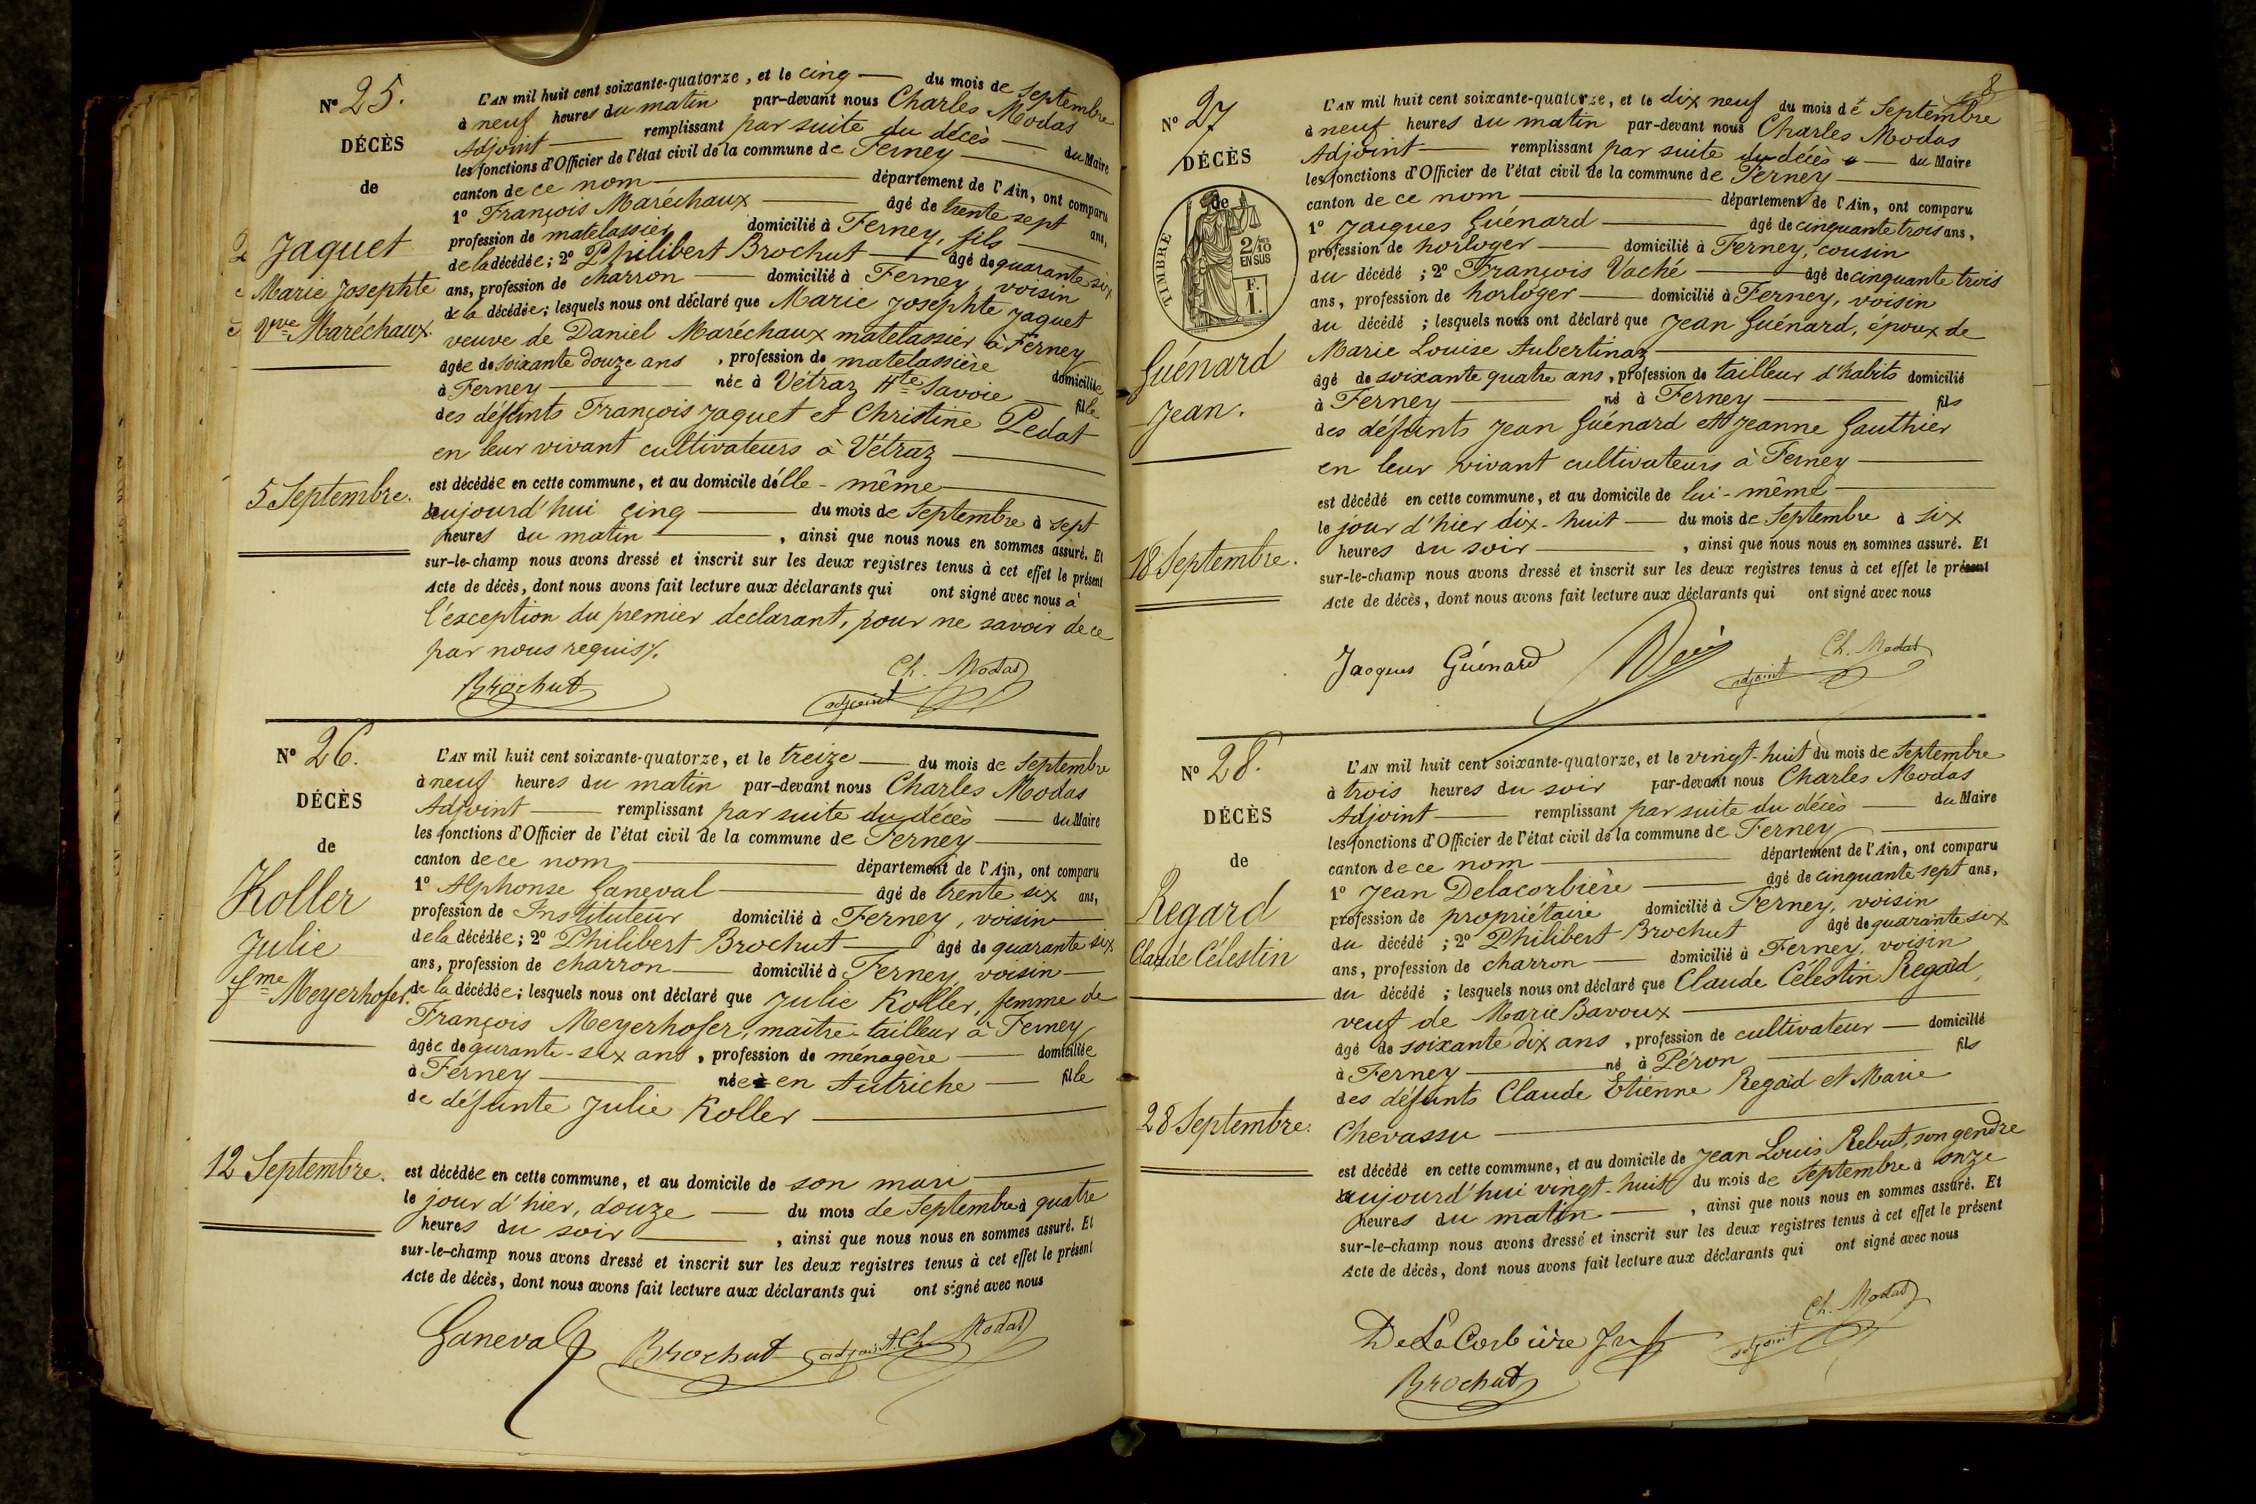 N° 25.
DÉCÈS
de
Jaquet
Marie Josephte
Vve Maréchaux.
5 Septembre.
L'AN mil huit cent soixante-quatorze, et le cinq du mois de Septembre
à neuf heures du matin par-devant nous Charles Modas
Adjoint remplissant par suite du décès du Maire
les fonctions d'Officier de l'état civil de la commune de Ferney
canton de ce nom département de l'Ain, ont comparu
1° François Maréchaux âgé de trente sept ans,
profession de matelassier domicilié à Ferney, fils
de la décédée; 2° Philibert Brochut âgé de quarante six
ans, profession de charron domicilié à Ferney, voisin
de la décédée; lesquels nous ont déclaré que Marie Josephte Jaquet
veuve de Daniel Maréchaux matelassier à Ferney
âgée de soixante douze ans, profession de matelassière domiciliée
à Ferney née à Vétraz Hte Savoie fille
des défunts François Jaquet et Christine Pedat
en leur vivant cultivateurs à Vétraz
est décédée en cette commune, et au domicile d'elle-même
aujourd'hui cinq du mois de Septembre à sept
heures du matin, ainsi que nous nous en sommes assuré. Et
sur-le-champ nous avons dressé et inscrit sur les deux registres tenus à cet effet le présent
Acte de décès, dont nous avons fait lecture aux déclarants qui ont signé avec nous à
l'exception du premier declarant, pour ne savoir de ce
par nous requis.
Brochut
Ch. Modas
adjoint
N° 26.
DÉCÈS
de
Koller
Julie
fme Meyerhofer.
12 Septembre.
L'AN mil huit cent soixante-quatorze, et le treize du mois de Septembre
à neuf heures du matin par-devant nous Charles Modas
Adjoint remplissant par suite du décès du Maire
les fonctions d'Officier de l'état civil de la commune de Ferney
canton de ce nom département de l'Ain, ont comparu
1° Alphonse Ganeval âgé de trente six ans,
profession de Instituteur domicilié à Ferney, voisin
de la décédée; 2° Philibert Brochut âgé de quarante six
ans, profession de charron domicilié à Ferney, voisin
de la décédée; lesquels nous ont déclaré que Julie Koller, femme de
François Meyerhofer, maître-tailleur à Ferney
âgée de qurante-six ans, profession de ménagère domiciliée
à Ferney née en Autriche fille
de défunte Julie Koller
est décédée en cette commune, et au domicile de son mari
le jour d'hier, douze du mois de Septembre à quatre
heures du soir, ainsi que nous nous en sommes assuré. Et
sur-le-champ nous avons dressé et inscrit sur les deux registres tenus à cet effet le présent
Acte de décès, dont nous avons fait lecture aux déclarants qui ont signé avec nous
Ganeval Brochut adjoint Ch. Modas
8
N° 27
DÉCÈS
de
TIMBRE
2/10
EN SUS
F.
1.
Guénard
Jean.
18 Septembre.
L'AN mil huit cent soixante-quatorze, et le dix neuf du mois de Septembre
à neuf heures du matin par-devant nous Charles Modas
Adjoint remplissant par suite du décès du Maire
les fonctions d'Officier de l'état civil de la commune de Ferney
canton de ce nom département de l'Ain, ont comparu
1° Jacques Guénard âgé de cinquante trois ans,
profession de horloger domicilié à Ferney, cousin
du décédé; 2° François Vaché âgé de cinquante trois
ans, profession de horloger domicilié à Ferney, voisin
du décédé; lesquels nous ont déclaré que Jean Guénard, époux de
Marie Louise Aubertinaz
âgé de soixante quatre ans, profession de tailleur d'habits domicilié
à Ferney né à Ferney fils
des défunts Jean Guénard et Jeanne Gauthier
en leur vivant cultivateurs à Ferney
est décédé en cette commune, et au domicile de lui-même
le jour d'hier dix-huit du mois de Septembre à six
heures du soir, ainsi que nous nous en sommes assuré. Et
sur-le-champ nous avons dressé et inscrit sur les deux registres tenus à cet effet le présent
Acte de décès, dont nous avons fait lecture aux déclarants qui ont signé avec nous
Jacques Guénard
Ch. Modas
adjoint
N° 28.
DÉCÈS
de
Regard
Claude Célestin
28 Septembre.
L'AN mil huit cent soixante-quatorze, et le vingt-huit du mois de Septembre
à trois heures du soir par-devant nous Charles Modas
Adjoint remplissant par suite du décès du Maire
les fonctions d'Officier de l'état civil de la commune de Ferney
canton de ce nom département de l'Ain, ont comparu
1° Jean Delacorbière âgé de cinquante sept ans,
profession de propriétaire domicilié à Ferney, voisin
du décédé; 2° Philibert Brochut âgé de quarante six
ans, profession de charron domicilié à Ferney, voisin
du décédé; lesquels nous ont déclaré que Claude Célestin Regard,
veuf de Marie Bavoux
âgé de soixante dix ans, profession de cultivateur domicilié
à Ferney né à Péron fils
des défunts Claude Etienne Regard et Marie
Chevassu
est décédé en cette commune, et au domicile de Jean Louis Rebut, son gendre
aujourd'hui vingt-huit du mois de Septembre à onze
heures du matin, ainsi que nous nous en sommes assuré. Et
sur-le-champ nous avons dressé et inscrit sur les deux registres tenus à cet effet le présent
Acte de décès, dont nous avons fait lecture aux déclarants qui ont signé avec nous
De La Corbière
Ch. Modas
adjoint
Brochut